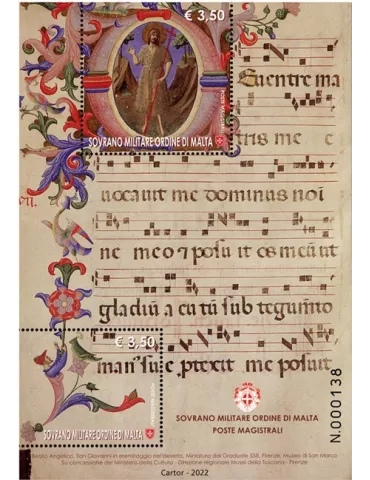 € 3,50
POSTE MAGISTRALI
SOVRANO MILITARE ORDINE DI MALTA
Euentre ma
tris me c
uocauit me dominus noi
ne meo ⁊ posuit os meum ut
gladiũ acutũ sub tegumto
man suę ptexit me posuit
€ 3,50
POSTE MAGISTRALI
SOVRANO MILITARE ORDINE DI MALTA
SOVRANO MILITARE ORDINE DI MALTA
POSTE MAGISTRALI
N.000138
Beato Angelico, San Giovanni in eremitaggio nel deserto, Miniatura dal Graduale 558, Firenze, Museo di San Marco
Su concessione del Ministero della Cultura - Direzione regionale Musei della Toscana - Firenze
Cartor - 2022